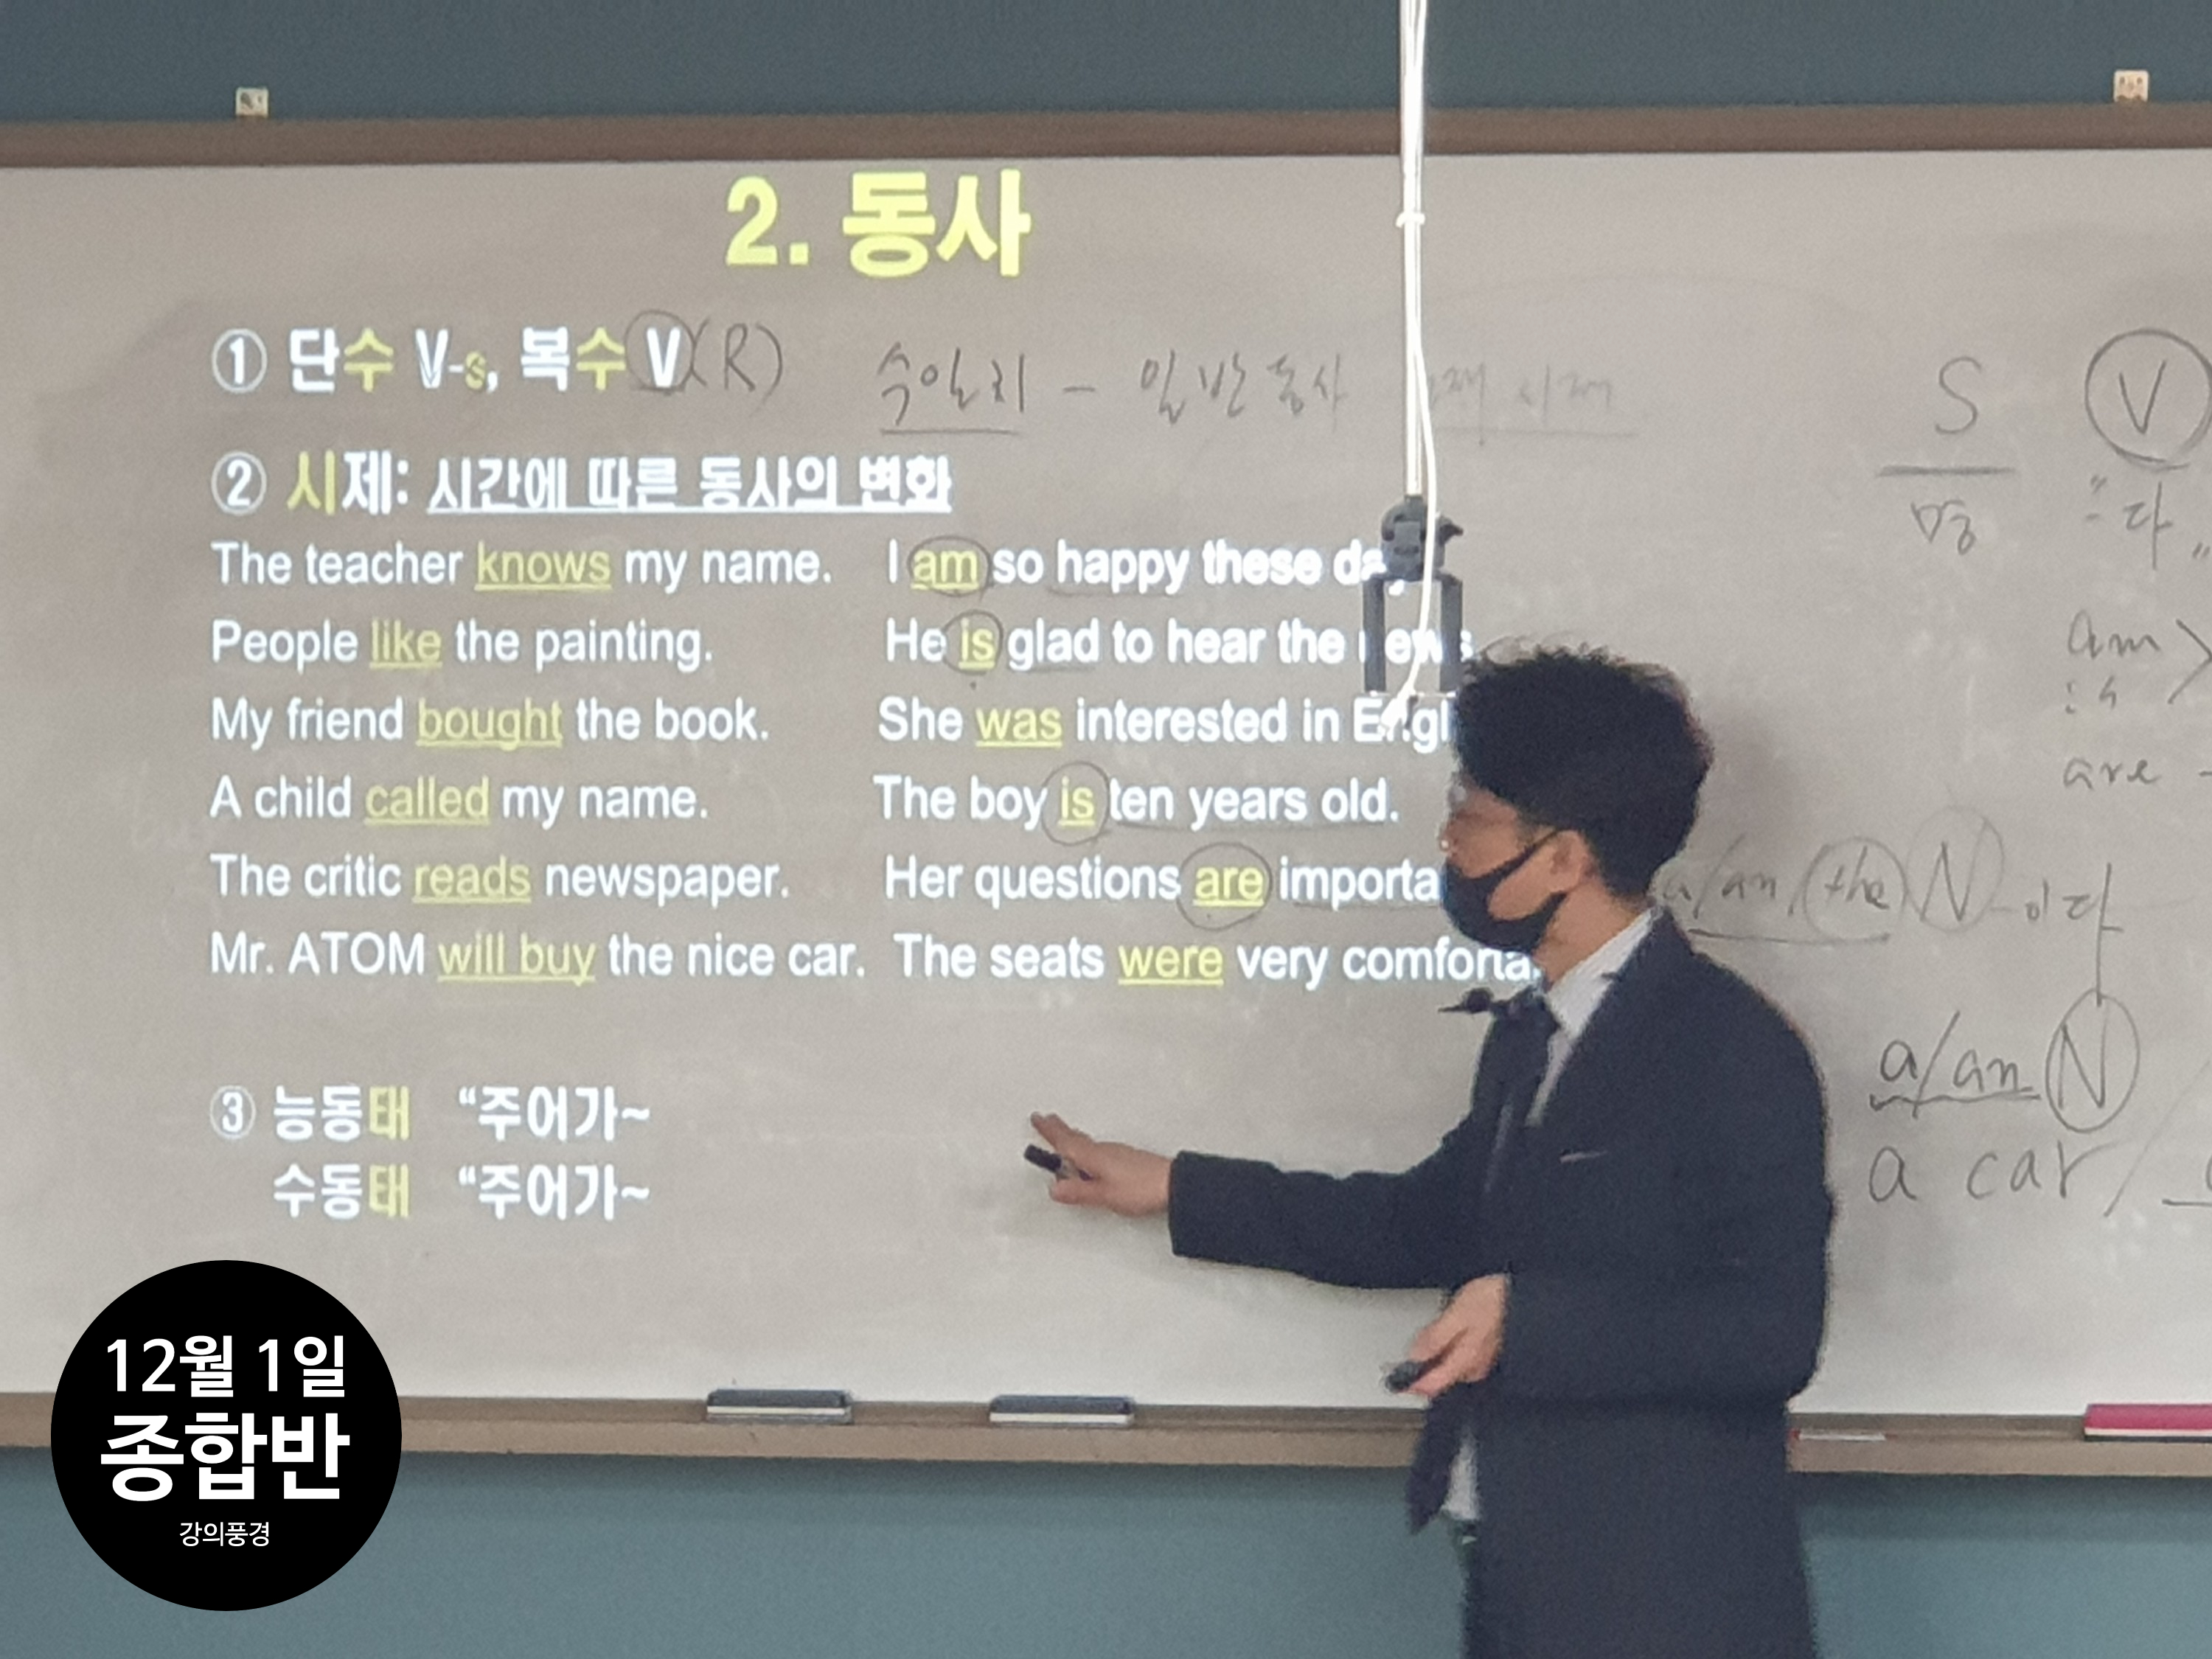 2. 동사
① 단수 V-s, 복수 V (R)
수일치 - 일반동사 시제
② 시제: 시간에 따른 동사의 변화
The teacher knows my name.
People like the painting.
My friend bought the book.
A child called my name.
The critic reads newspaper.
Mr. ATOM will buy the nice car.
I am so happy these
He is glad to hear the
She was interested in
The boy is ten years old.
Her questions are
The seats were very
③ 능동태 “주어가~
수동태 “주어가~
S V
명 "-다"
am
is
are
a/an, the N -이다
a/an N
a car /
12월 1일
종합반
강의풍경